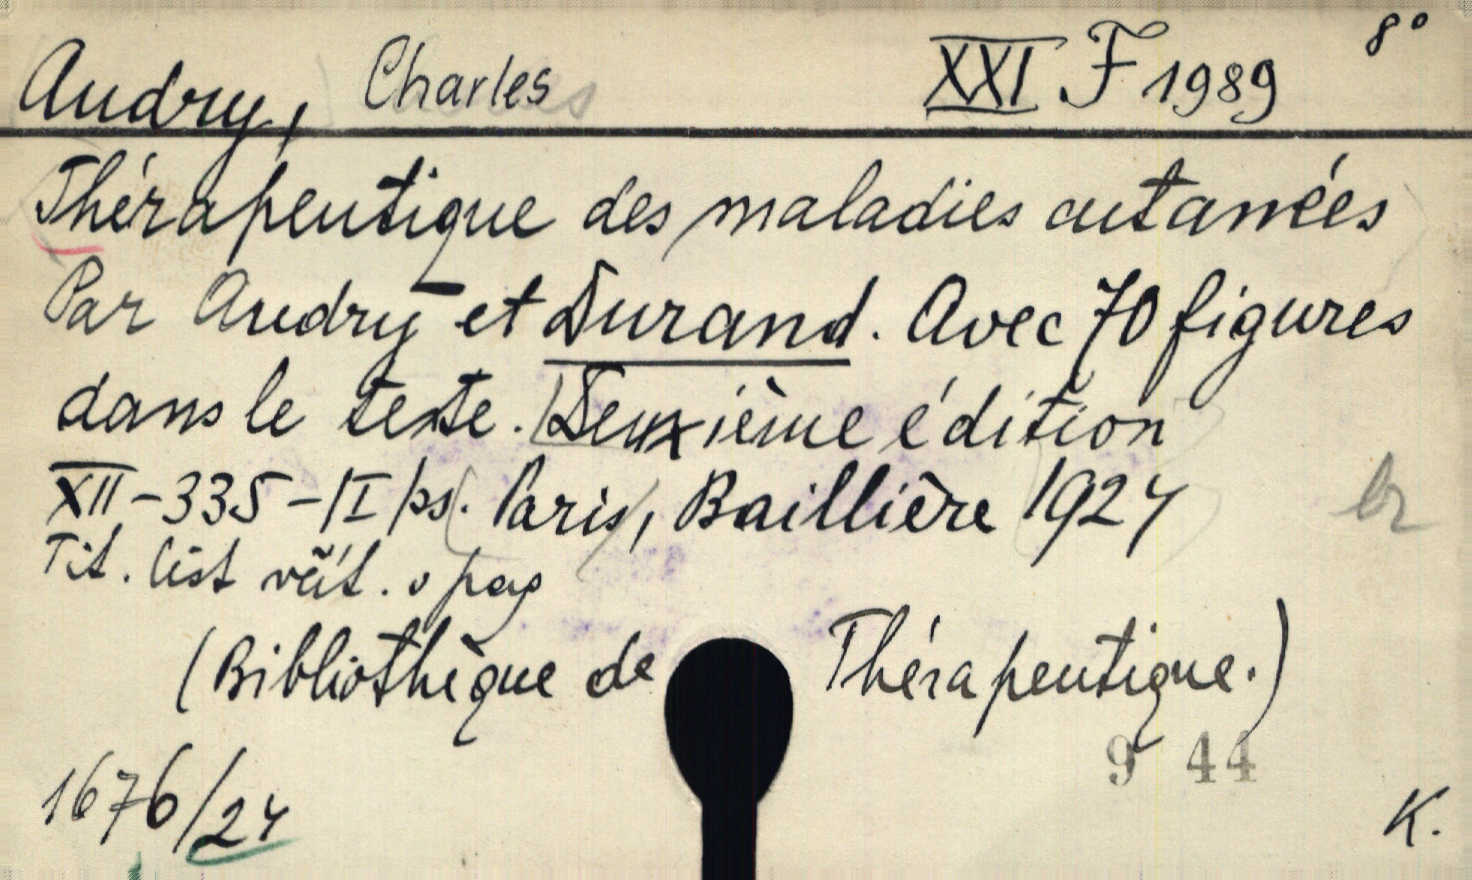 Audry, Charles XXI F 1989 8°
Thérapeutique des maladies cutanées
Par Audry et Durand. Avec 70 figures
dans le texte. Deuxième édition
XII-335-|I ps. Paris, Baillière 1927
Tit. list
(Bibliothèque de Thérapeutique.)
9 44
1676/27
K.